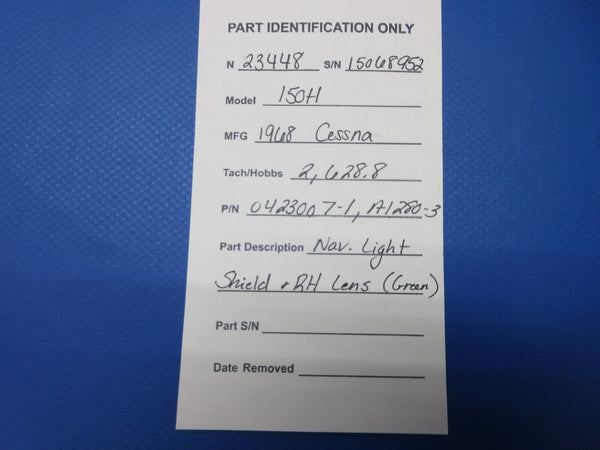 PART IDENTIFICATION ONLY
N 23448 S/N 15068952
Model 150H
MFG 1968 Cessna
Tach/Hobbs 2,628.8
P/N 0423007-1, A1280-3
Part Description Nav. Light
Shield & RH Lens (Green)
Part S/N
Date Removed